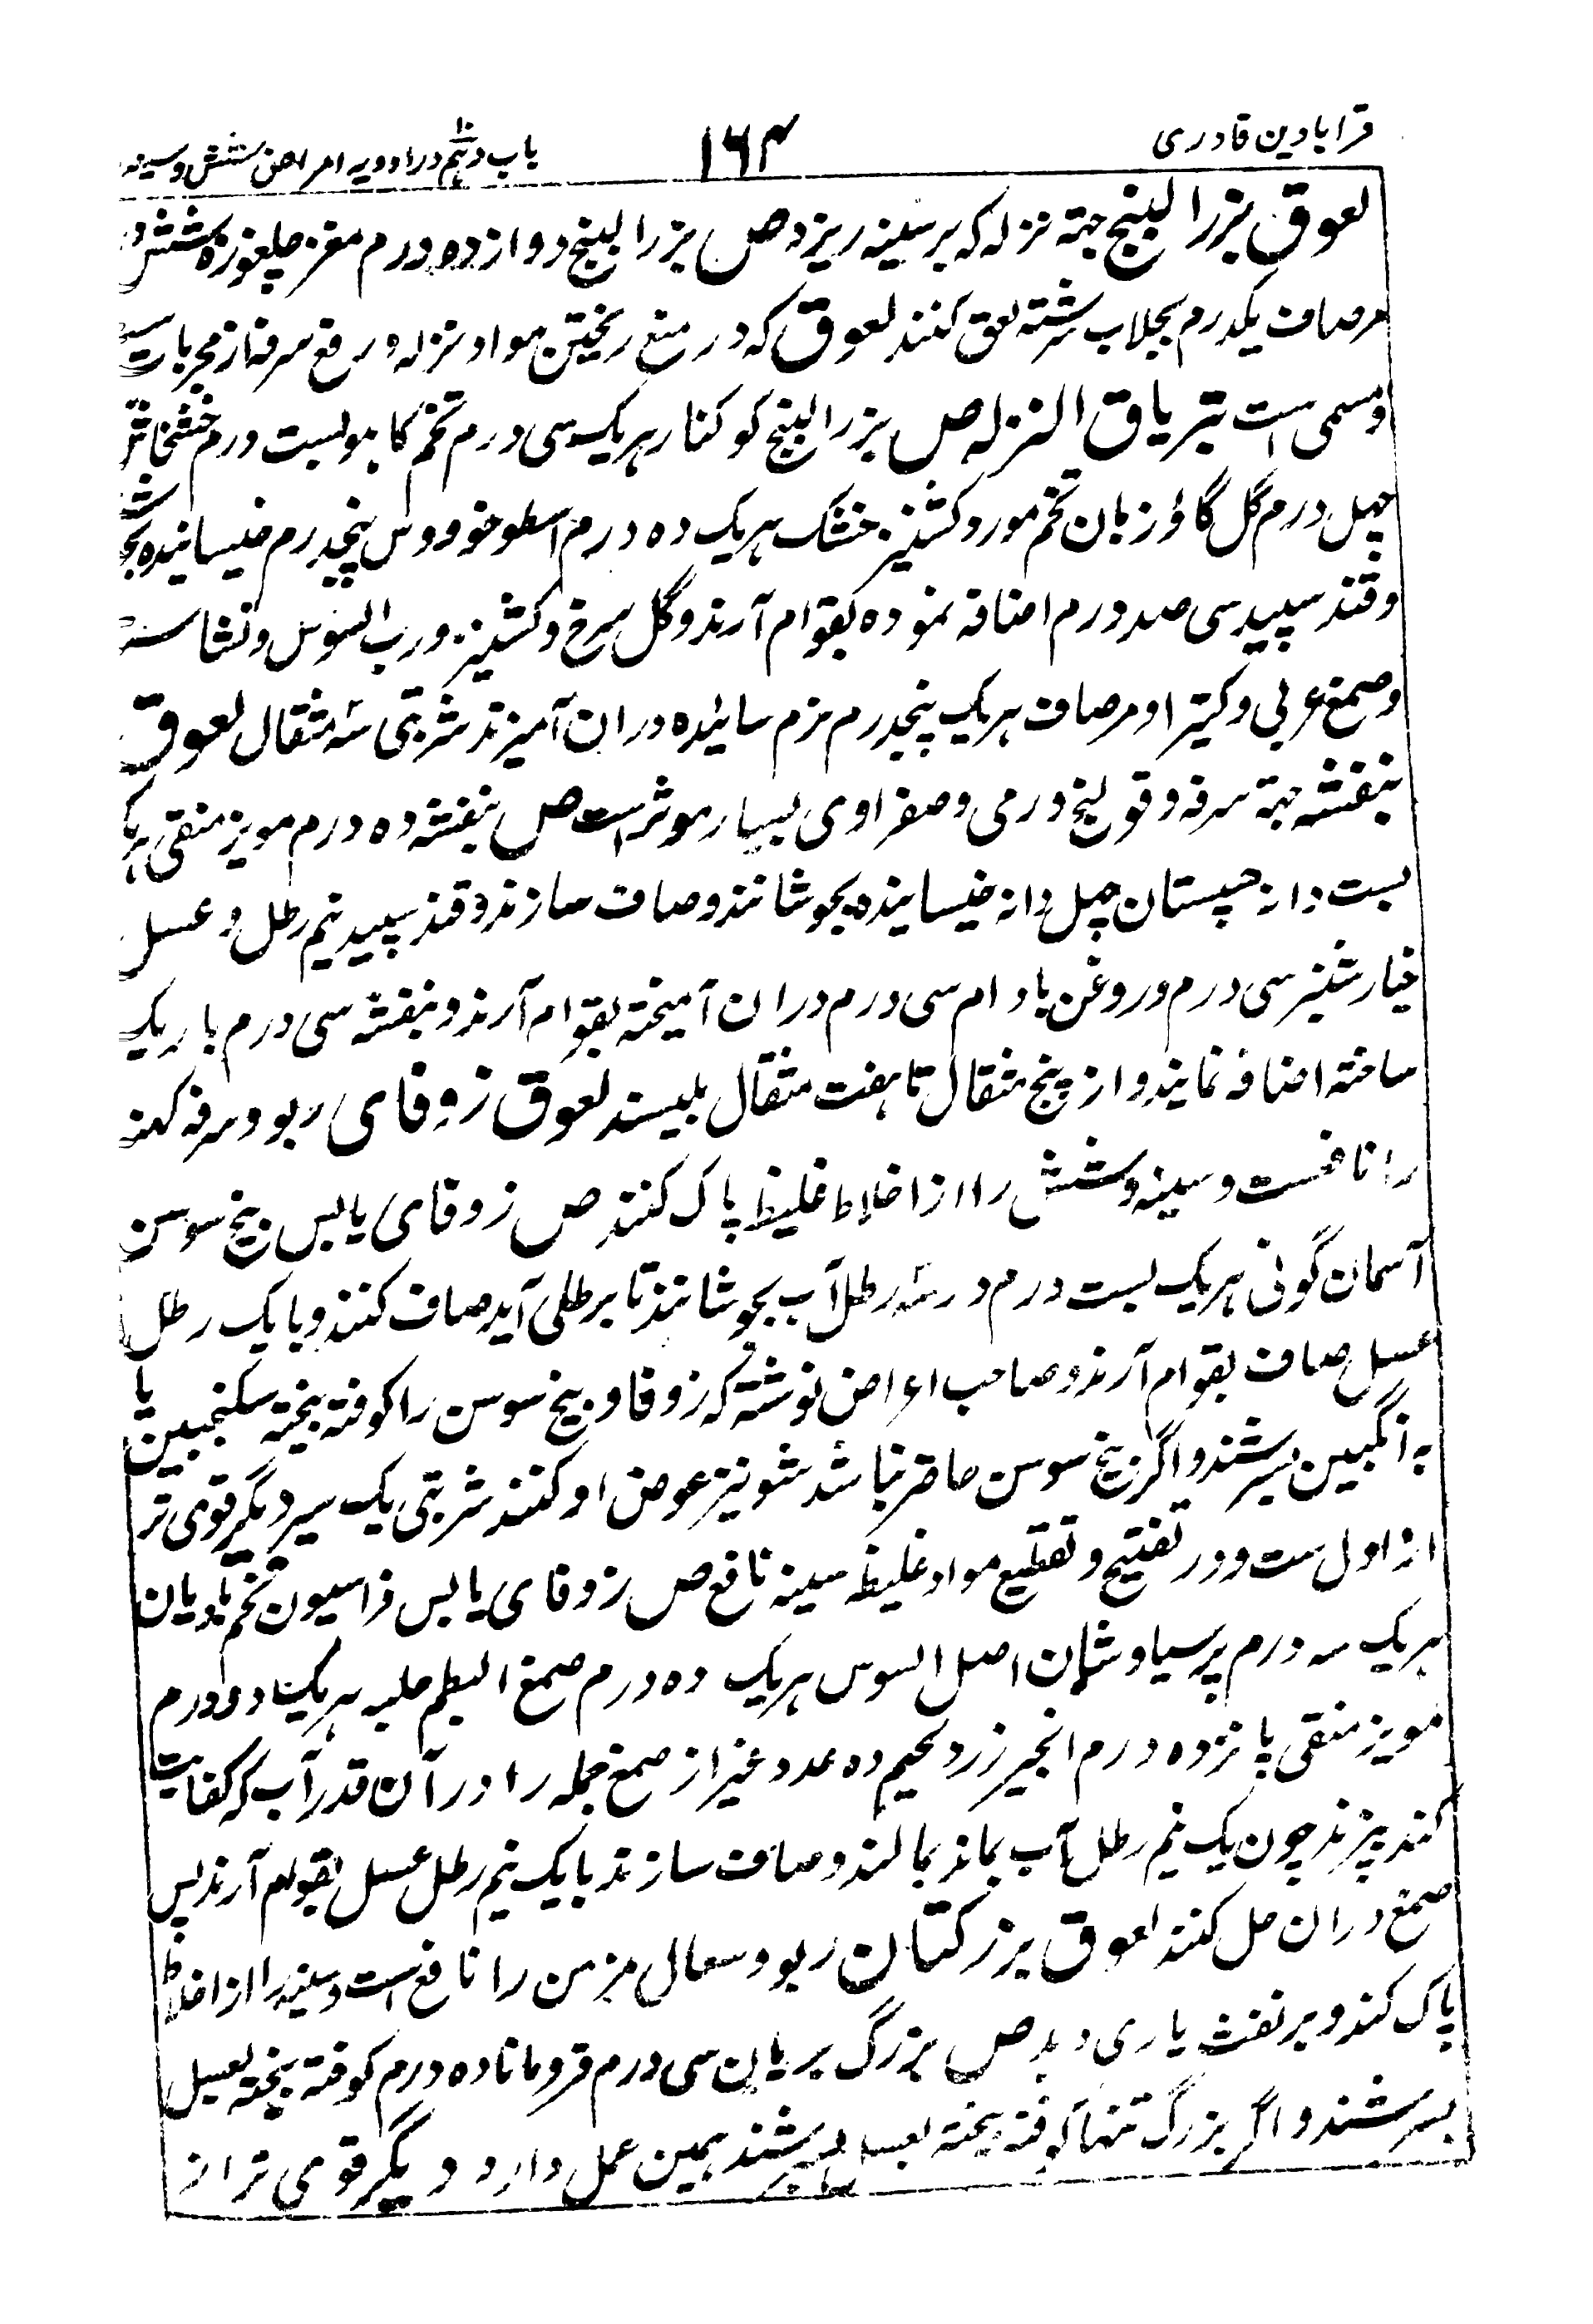 قرابادین قادری
۱۶۴
باب دہم در ادویہ امراض شش و سینہ
لعوق بزر البنج جہۃ نزلہ کہ بر سینہ ریزد ص بزر البنج دوازدہ درم مغز چلغوزہ شش
مرصاف یکدرم بجلاب سرشتہ لعق کنند لعوق کہ در منع ریختن مواد نزلہ و رفع سرفہ از مجربات
و مسمی است بتریاق النزلہ ص بزر البنج کوکنار ہریک سی درم تخم کاہو بست درم خشخاش
چہل درم گل گاؤزبان تخم مورد کشنیز خشک ہریک دہ درم اسطوخودوس پنجدرم خیسانیدہ
و قند سپید سی صد درم اضافہ نمودہ بقوام آرند و گل سرخ و کشنیز و رب السوس و نشاستہ
و صمغ عربی و کتیرا و مرصاف ہریک پنجدرم نرم سائیدہ دران آمیزند شربتی سہ مثقال لعوق
بنفشہ جہۃ سرفہ و قولنج ورمی و صفراوی بسیار موثر است ص بنفشہ دہ درم مویز منقی
بست دانہ سپستان چہل دانہ خیسانیدہ بجوشانند و صاف سازند و قند سپید نیم رطل و عسل
خیارشنبر سی درم و روغن بادام سی درم دران آمیختہ بقوام آرند و بنفشہ سی درم باریک
ساختہ اضافہ نمایند و از پنج مثقال تا ہفت مثقال بلیسند لعوق زوفای ربو و سرفہ کہنہ
را نافست و سینہ و شش را از اخلاط غلیظ پاک کنند ص زوفای یابس بیخ سوسن
آسمان گونی ہریک بست درم در سہ رطل آب بجوشانند تا برطلی آید صاف کنند و با یک رطل
عسل صاف بقوام آرند و صاحب اعراض نوشتہ کہ زوفا و بیخ سوسن را کوفتہ بیختہ سکنجبین یا
بہ انگبین بسرشند و اگر بیخ سوسن حاضر نباشد شونیز عوض او کنند شربتی یک سیر دیگر قوی تر
از اول ست و در تفتیح و تقطیع مواد غلیظ سینہ نافع ص زوفای یابس فراسیون تخم بادیان
ہریک سہ درم پرسیاوشان اصل السوس ہریک دہ درم صمغ البطم حلبہ ہریک دو درم
مویز منقی پانزدہ درم انجیر زرد لحیم دہ عدد غیر از صمغ جملہ را در آن قدر آب کہ کفایت
کند پزند چون یک نیم رطل آب بماند بمالند و صاف سازند با یک نیم رطل عسل بقوام آرند پس
صمغ دران حل کنند لعوق بزر کتان ربو و سعال مزمن را نافع است و سینہ را از اخلاط
پاک کند و بر نفث یاری دہد ص بزرگ بریان سی درم قردمانا دہ درم کوفتہ بیختہ بعسل
بسرشند و اگر بزرگ تنہا کوفتہ بیختہ بعسل بسرشند ہمین عمل دارد و دیگر قوی تر از